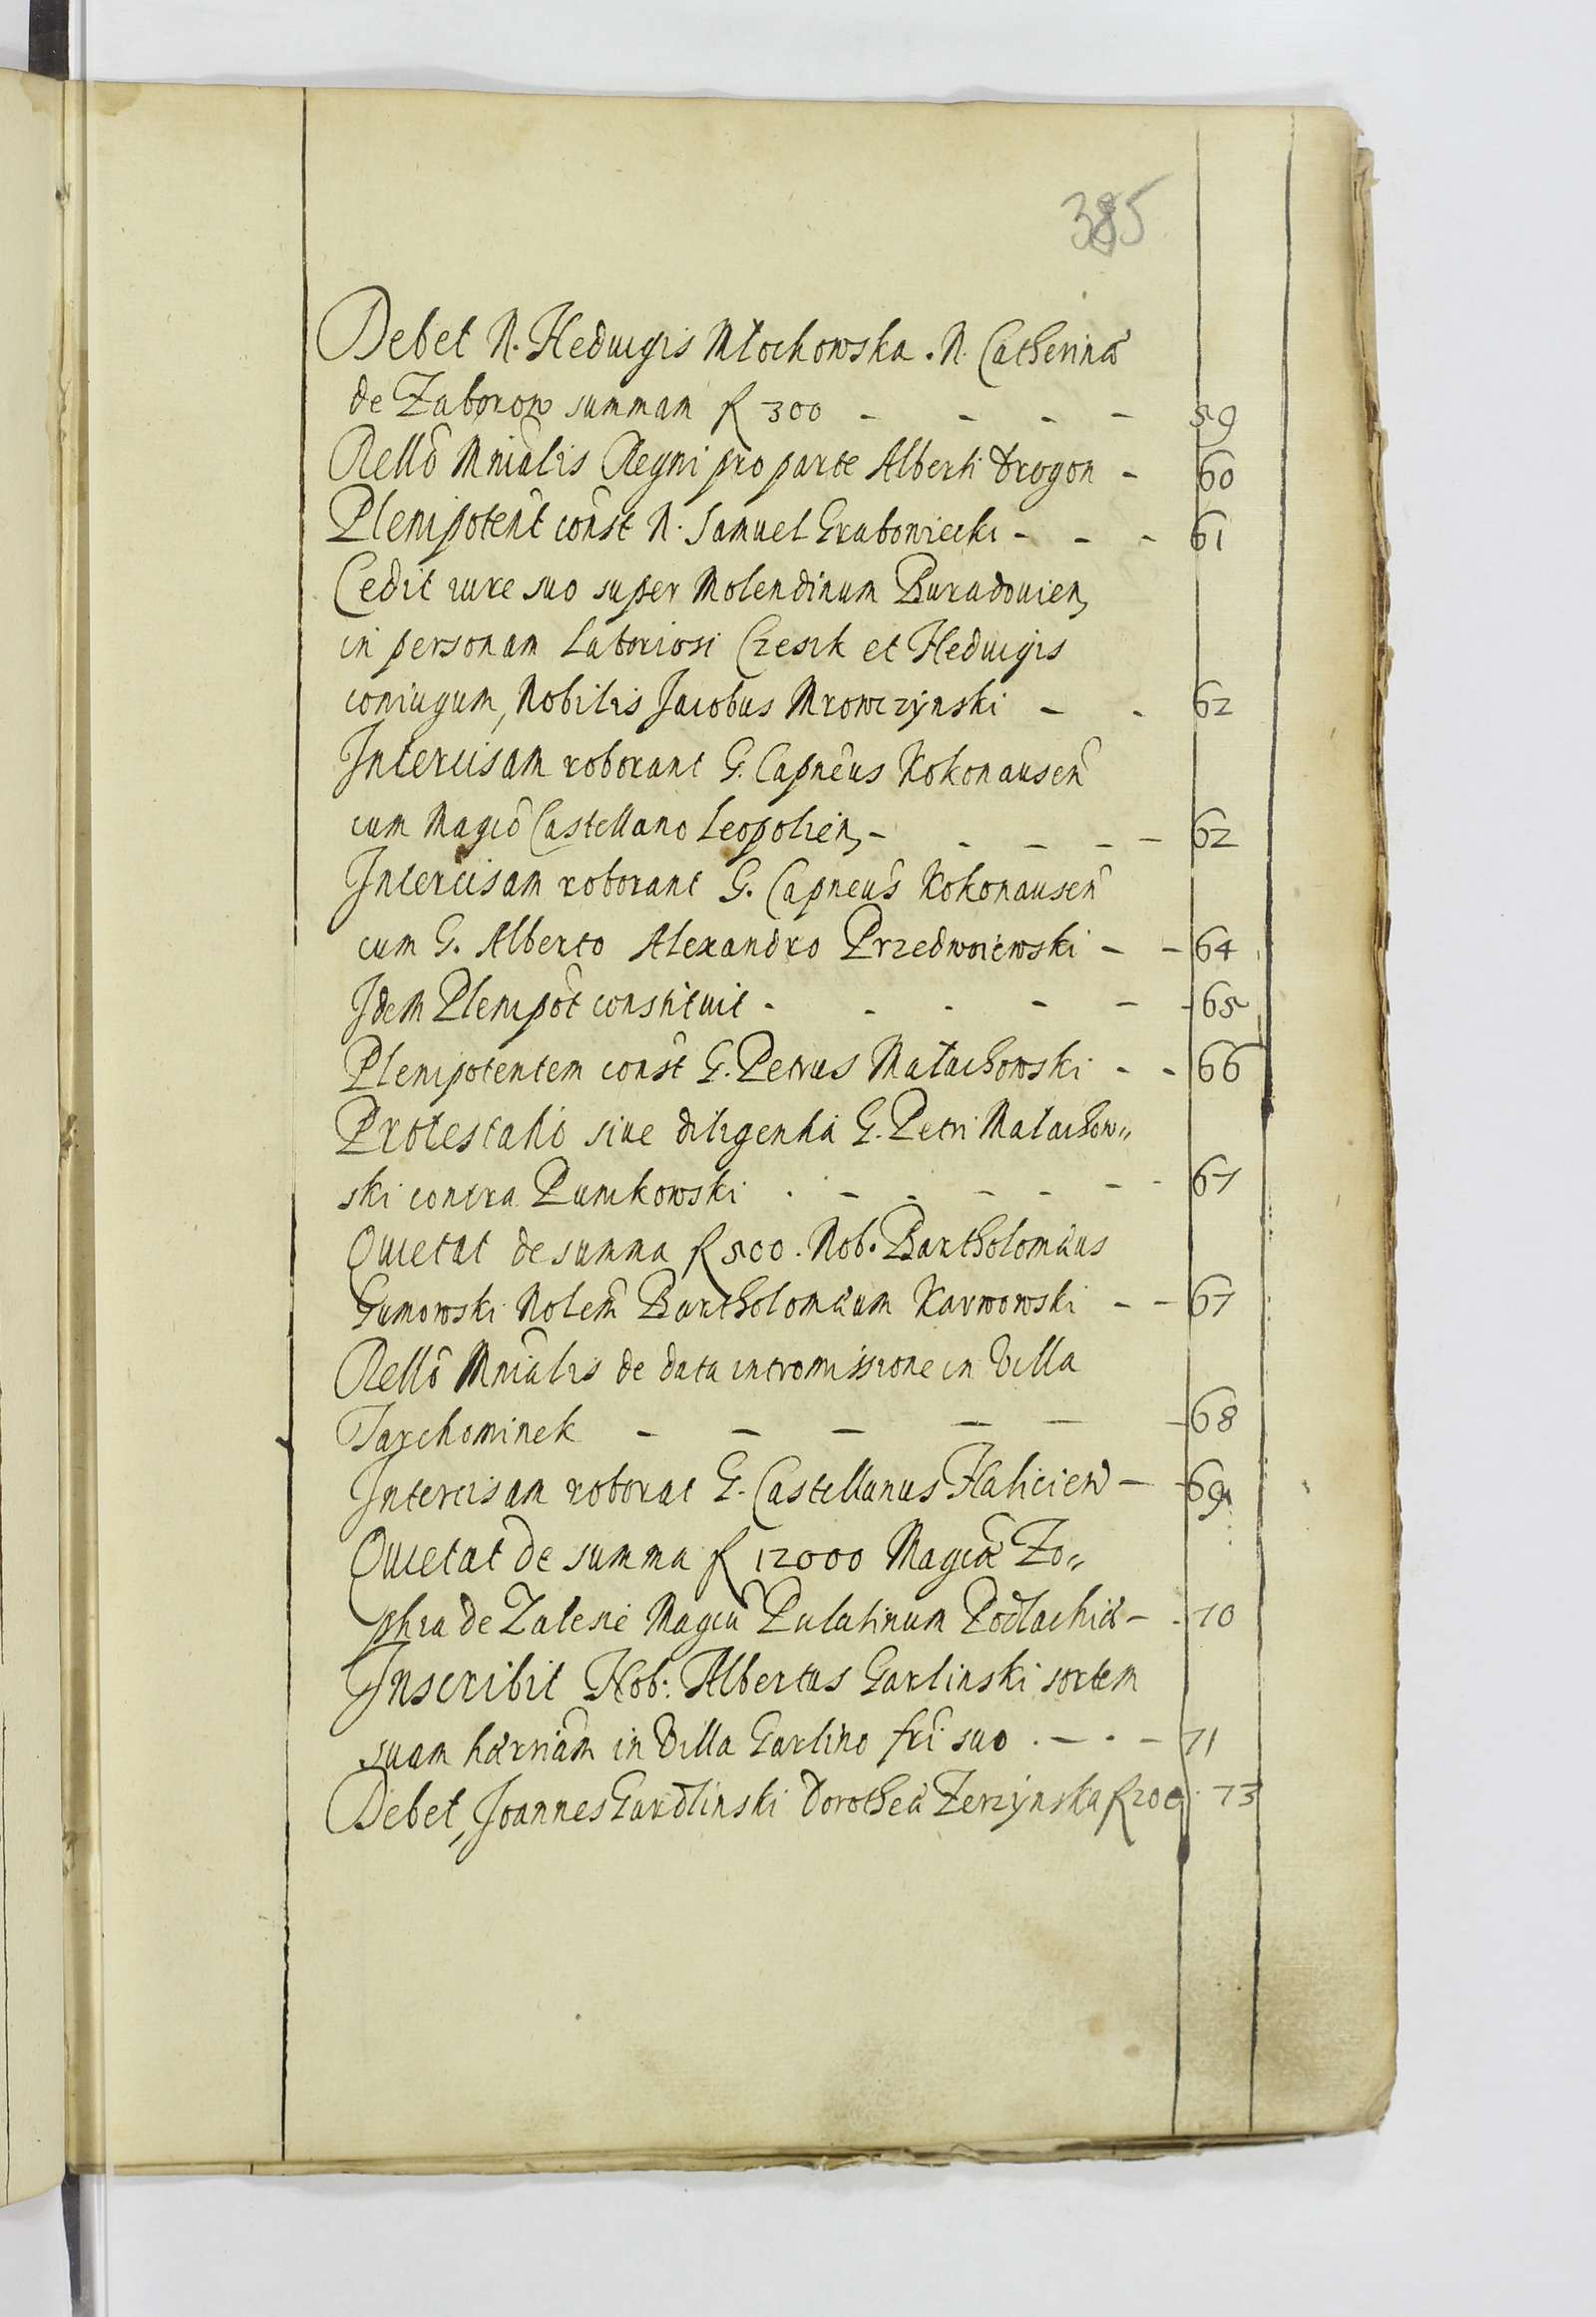 385
Debet N. Hedvigis Młochowska. N. Catherinæ
de Zaborow summam f 300 - - - - 59
Rellõ Mniãlis Regni pro parte Alberti Drogon - 60
Plenipoteñt cońst N. Samuel Graboniecki - - - 61
Cedit iure suo super Molendinum Buradovien,
in personam Laboriosi Czesik et Hedvigis
coniugum, Nobilis Jacobus Mrowczynski - - 62
Intercisam roborant G. Capnẽus Kokonauseñ
cum Magcõ Castellano Leopolien, - - - - - 62
Intercisam roborant G. Capneũs Kokonauseñ
cum G. Alberto Alexandro Przedwoiewski - - 64
Idem Plenipõt constituit - - - - - - 65
Plenipotentem cońst G. Petrus Małachowski - - 66
Protestatio siue diligentia G. Petri Małachow„
ski contra Punikowski . - - - - - - 67
Quietat de summa f 500. Nob. Bartholomæus
Gumowski Nolem̃ Bartholomæum Karwowski - - 67
Rellõ Mniãlis de data intromissione in Villa
Tarchominek - - - - - - 68
Intercisam roborat G. Castellanus Halicień - - 69
Quietat de summa f 12000 Magcã Zo„
phia de Zalesie Magcũ Palatinum Podlachiæ - - 70
Inscribit Nob: Albertus Garlinski sortem
suam hæriãm in Villa Garlino frĩ suo . - . - 71
Debet, Joannes Gardlinski Dorotheæ Zerzynska f 200 . 73